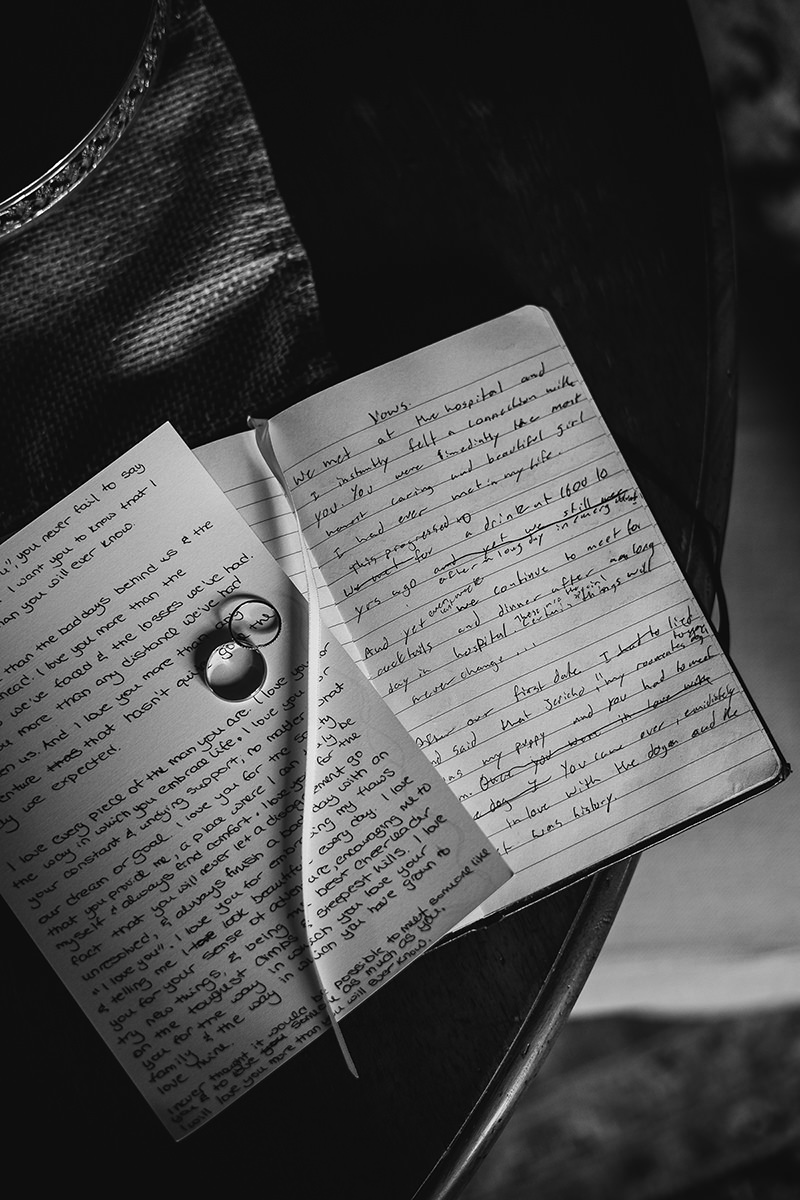 u", you never fail to say
I want you to know that I
than you will ever know.
than the bad days behind us & the
ahead. I love you more than the
we've faced & the losses we've had.
you more than any distance we've had
us. And I love you more than any
that hasn't quite gone
we expected.
I love every piece of the man you are. I love you for
the way in which you embrace life. I love you for
your constant & undying support, no matter what
our dream or goal. I love you for the safety
that you provide me, a place where I can truly be
myself & always find comfort. I love you for the
fact that you will never let a disagreement go
unresolved, & always finish a bad day with an
"I love you". I love you for embracing my flaws
& telling me I look beautiful every day. I love
you for your sense of adventure, encouraging me to
try new things, & being my best cheerleader
on the toughest climbs & steepest hills. I love
you for the way in which you love your
family & the way in which you have grown to
love mine.
I never thought it would be possible to meet someone like
you & to love someone as much as you.
I will love you more than you will ever know.
Vows.
We met at the hospital and
I instantly felt a connection with
you. You were imediatly the most
honest caring and beautiful girl
I had ever met in my life.
This progressed to
We met for a drink at 1600 10
yrs ago and yet we still were
after a long day in emergency
And yet even more
we continue to meet for
cocktails and dinner after long
day in hospital certain things will
never change...
After our first date I had to lied
and said that Jericho, my roomates dog
was my puppy and you had to meet
Once you were in love with
day I You came over, emidiatly
in love with the dogen and the
was history.